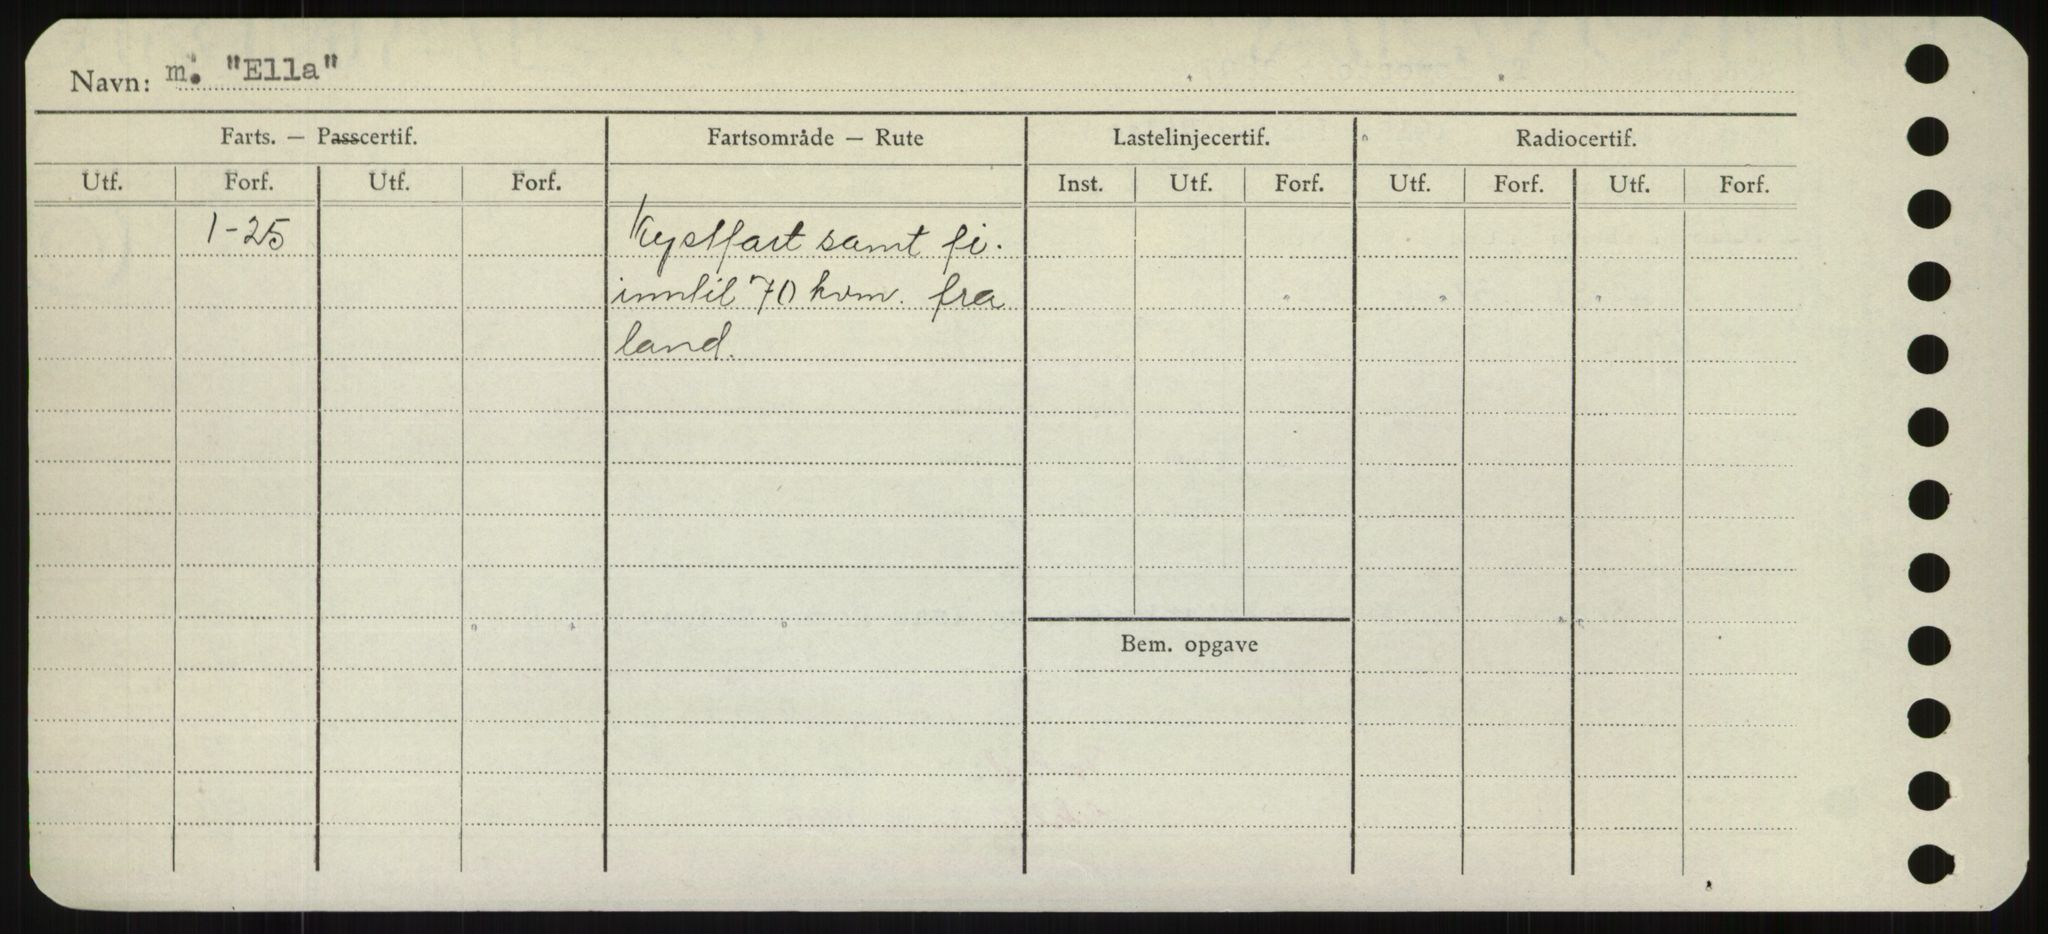 Navn: m. "Ella"
Farts. — Passcertif. Fartsområde — Rute Lastelinjecertif. Radiocertif.
Utf. Forf. Utf. Forf. Inst. Utf. Forf. Utf. Forf. Utf. Forf.
1-25 Kystfart samt fi.
inntil 70 kvm. fra
land.
Bem. opgave